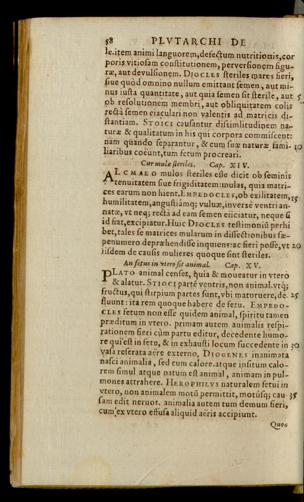 58 PLVTARCHI DE
le. item animi languorem, defectum nutritionis, cor
poris vitiosam constitutionem, perversionem figu-
ræ, aut devulsionem. DIOCLES steriles mares fieri,
sive quòd omnino nullum emittant semen, aut mi-
nus iusta quantitate, aut quia semen sit sterile, aut 5
ob resolutionem membri, aut obliquitatem colis
rectà semen eiaculari non valentis ad matricis di-
stantiam. STOICI causantur dissimilitudinem na-
turæ & qualitatum in his qui corpora commiscent:
nam quando separantur, & cum suæ naturæ fami- 10
liaribus coëunt, tum fetum procreari.
Cur mulæ steriles. Cap. XIV.
ALCMAEO mulos steriles esse dicit ob seminis
tenuitatem siue frigiditatem: mulas, quia matri-
ces earum non hient. EMPEDOCLES, ob exilitatem, 15
humilitatem, angustiámq; vuluæ, inversè ventri an-
natæ, vt neq; rectà ad eam semen eiiciatur, neque si
id fiat, excipiatur. Huic DIOCLES testimoniũ perhi
bet, tales se matrices mularum in dissectionibus sæ-
penumero depræhendisse inquiens: ac fieri posse, vt 20
iisdem de causis mulieres quoque sint steriles.
An fetus in vtero sit animal. Cap. XV.
PLATO animal censet, quia & moueatur in vtero
& alatur. STOICI partẽ ventris, non animal. vtq;
fructus, qui stirpium partes sunt, vbi maturuere, de- 25
fluunt: ita rem quoque habere de fetu. EMPEDO-
CLES fetum non esse quidem animal, spiritu tamen
præditum in vtero. primam autem animalis respi-
rationem fieri cùm partu editur, decedente humo-
re qui est in fetu, & in exhausti locum succedente in 30
vasa reserata aëre externo. DIOGENES inanimata
nasci animalia, sed cum calore. atque insitum calo-
rem simul atque natum est animal, animam in pul-
mones attrahere. HEROPHILVS naturalem fetui in
vtero, non animalem motũ permittit, motúsq; cau- 35
sam edit neruos. animalia autem tum demum fieri,
cum ex vtero effusa aliquid aëris accipiunt.
Quos